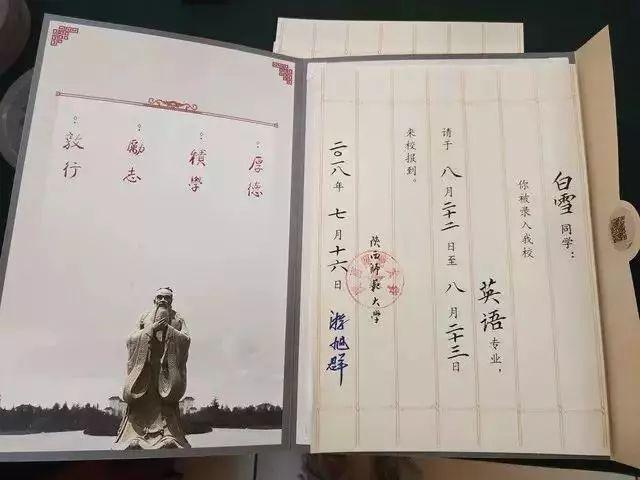 厚德
積學
勵志
敦行
白雪同学：
你被录入我校
英语专业，
请于八月二十二日至八月二十三日
来校报到。
陕西师範大学
二〇一八年七月十六日
游旭群